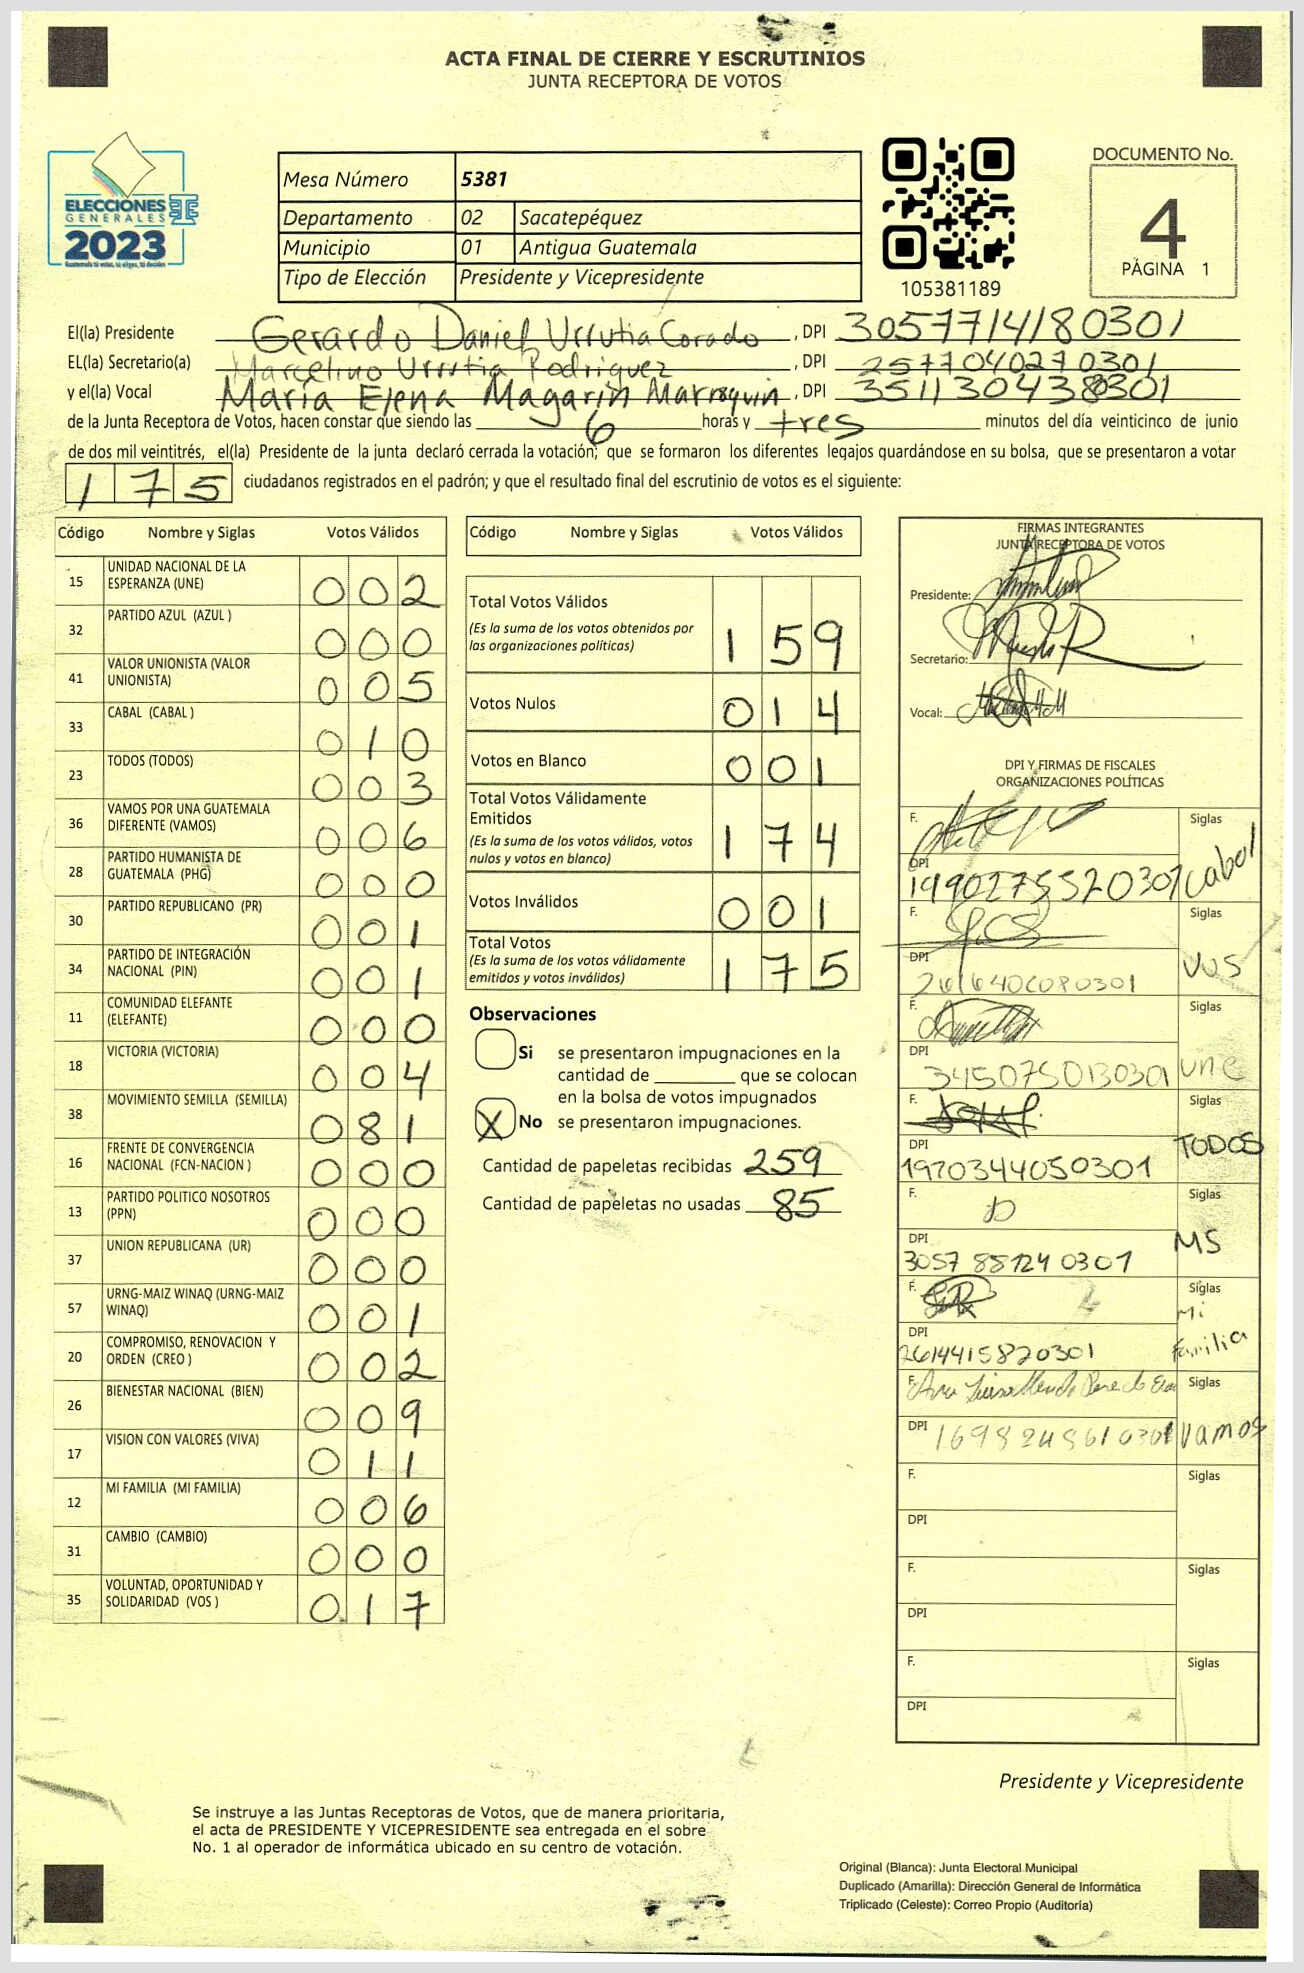 ACTA FINAL DE CIERRE Y ESCRUTINIOS
JUNTA RECEPTORA DE VOTOS
ELECCIONES
GENERALES
2023
Guatemala tú votas, tú eliges, tú decides
Mesa Número 5381
Departamento 02 Sacatepéquez
Municipio 01 Antigua Guatemala
Tipo de Elección Presidente y Vicepresidente
105381189
DOCUMENTO No.
4
PÁGINA 1
El(la) Presidente Gerardo Daniel Urrutia Corado, DPI 3057714180301
EL(la) Secretario(a) Marcelino Urrutia Rodriguez, DPI 2577040270301
y el(la) Vocal Maria Elena Magarin Marroquin, DPI 3511304380301
de la Junta Receptora de Votos, hacen constar que siendo las 6 horas y tres minutos del día veinticinco de junio
de dos mil veintitrés, el(la) Presidente de la junta declaró cerrada la votación; que se formaron los diferentes legajos guardándose en su bolsa, que se presentaron a votar
175 ciudadanos registrados en el padrón; y que el resultado final del escrutinio de votos es el siguiente:
Código Nombre y Siglas Votos Válidos
15 UNIDAD NACIONAL DE LA ESPERANZA (UNE) 002
32 PARTIDO AZUL (AZUL ) 000
41 VALOR UNIONISTA (VALOR UNIONISTA) 005
33 CABAL (CABAL ) 010
23 TODOS (TODOS) 003
36 VAMOS POR UNA GUATEMALA DIFERENTE (VAMOS) 006
28 PARTIDO HUMANISTA DE GUATEMALA (PHG) 000
30 PARTIDO REPUBLICANO (PR) 001
34 PARTIDO DE INTEGRACIÓN NACIONAL (PIN) 001
11 COMUNIDAD ELEFANTE (ELEFANTE) 000
18 VICTORIA (VICTORIA) 004
38 MOVIMIENTO SEMILLA (SEMILLA) 081
16 FRENTE DE CONVERGENCIA NACIONAL (FCN-NACION ) 000
13 PARTIDO POLITICO NOSOTROS (PPN) 000
37 UNION REPUBLICANA (UR) 000
57 URNG-MAIZ WINAQ (URNG-MAIZ WINAQ) 001
20 COMPROMISO, RENOVACION Y ORDEN (CREO ) 002
26 BIENESTAR NACIONAL (BIEN) 009
17 VISION CON VALORES (VIVA) 011
12 MI FAMILIA (MI FAMILIA) 006
31 CAMBIO (CAMBIO) 000
35 VOLUNTAD, OPORTUNIDAD Y SOLIDARIDAD (VOS ) 017
Código Nombre y Siglas Votos Válidos
Total Votos Válidos 159
(Es la suma de los votos obtenidos por
las organizaciones políticas)
Votos Nulos 014
Votos en Blanco 001
Total Votos Válidamente
Emitidos 174
(Es la suma de los votos válidos, votos
nulos y votos en blanco)
Votos Inválidos 001
Total Votos 175
(Es la suma de los votos válidamente
emitidos y votos inválidos)
Observaciones
Si se presentaron impugnaciones en la
cantidad de ________ que se colocan
en la bolsa de votos impugnados
X No se presentaron impugnaciones.
Cantidad de papeletas recibidas 259
Cantidad de papeletas no usadas 85
FIRMAS INTEGRANTES
JUNTA RECEPTORA DE VOTOS
Presidente:
Secretario:
Vocal:
DPI Y FIRMAS DE FISCALES
ORGANIZACIONES POLÍTICAS
F. Siglas
DPI 1990275520301 Cabal
F. Siglas
DPI VOS
F. Siglas
DPI 3450750130301 une
F. Siglas
DPI 1970344050301 TODOS
F. Siglas
DPI 3057 88124 0301 MS
F. Siglas
DPI 2614415820301 Mi Familia
F. Siglas
DPI vamos
F. Siglas
DPI
F. Siglas
DPI
F. Siglas
DPI
Presidente y Vicepresidente
Se instruye a las Juntas Receptoras de Votos, que de manera prioritaria,
el acta de PRESIDENTE Y VICEPRESIDENTE sea entregada en el sobre
No. 1 al operador de informática ubicado en su centro de votación.
Original (Blanca): Junta Electoral Municipal
Duplicado (Amarilla): Dirección General de Informática
Triplicado (Celeste): Correo Propio (Auditoría)